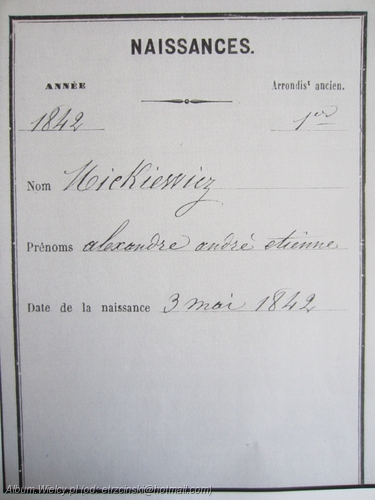 NAISSANCES.
ANNÉE
Arrondist ancien.
1842
1er
Nom Mickiewicz
Prénoms alexandre andré etienne
Date de la naissance 3 mai 1842
Album.Wielcy.pl (od: etrzcinski@hotmail.com)